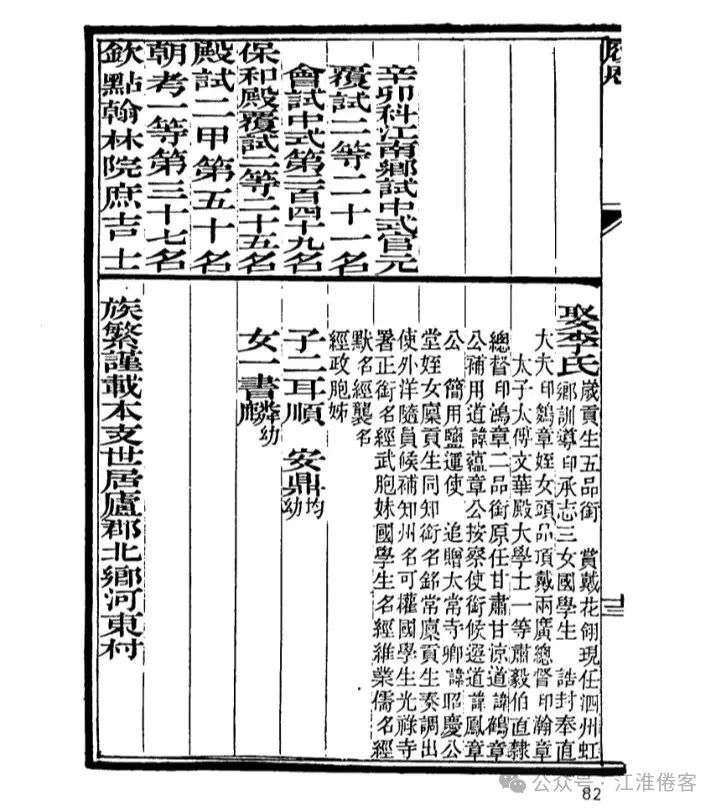 辛卯科江南鄉試中式官元
覆試二等二十一名
會試中式第三百四十九名
保和殿覆試二等二十五名
殿試二甲第五十名
朝考一等第三十七名
欽點翰林院庶吉士
娶李氏
歲貢生五品銜 賞戴花翎現任泗州虹
鄉訓導印承志三女國學生 誥封奉直
大夫印章姪女頭品頂戴兩廣總督印瀚章
太子太傅文華殿大學士一等肅毅伯直隸
總督印鴻章二品銜原任甘肅甘涼道諱鶴章
公補用道諱蘊章公按察使銜候選道諱鳳章
公 簡用鹽運使 追贈太常寺卿諱昭慶公
堂姪女廩貢生同知銜名銘常廩貢生奏調出
使外洋隨員候補知州名可權國學生光祿寺
署正銜名經武胞妹國學生名經維業儒名經
默名經襲名
經政胞姊
子二耳順 安鼎均幼
女一書麟幼
族繁謹載本支世居廬郡北鄉河東村
十三
82
公众号·江淮倦客